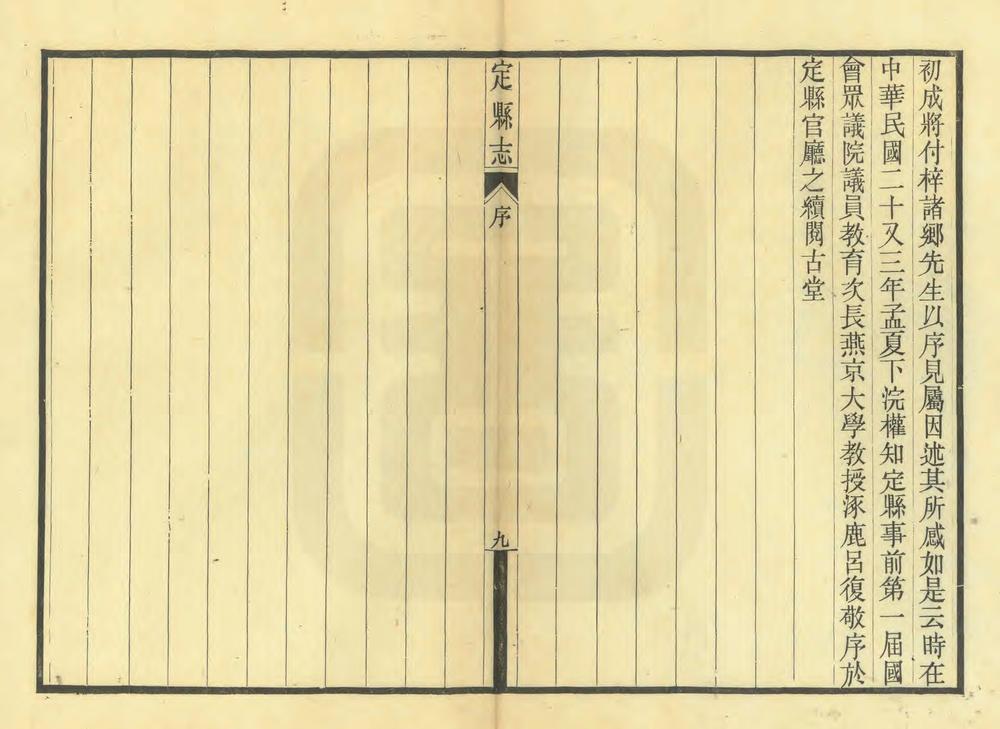 初成將付梓諸鄉先生以序見屬因述其所感如是云時在
中華民國二十又三年孟夏下浣權知定縣事前第一屆國
會眾議院議員教育次長燕京大學教授涿鹿呂復敬序於
定縣官廳之續閱古堂
定縣志
序
九